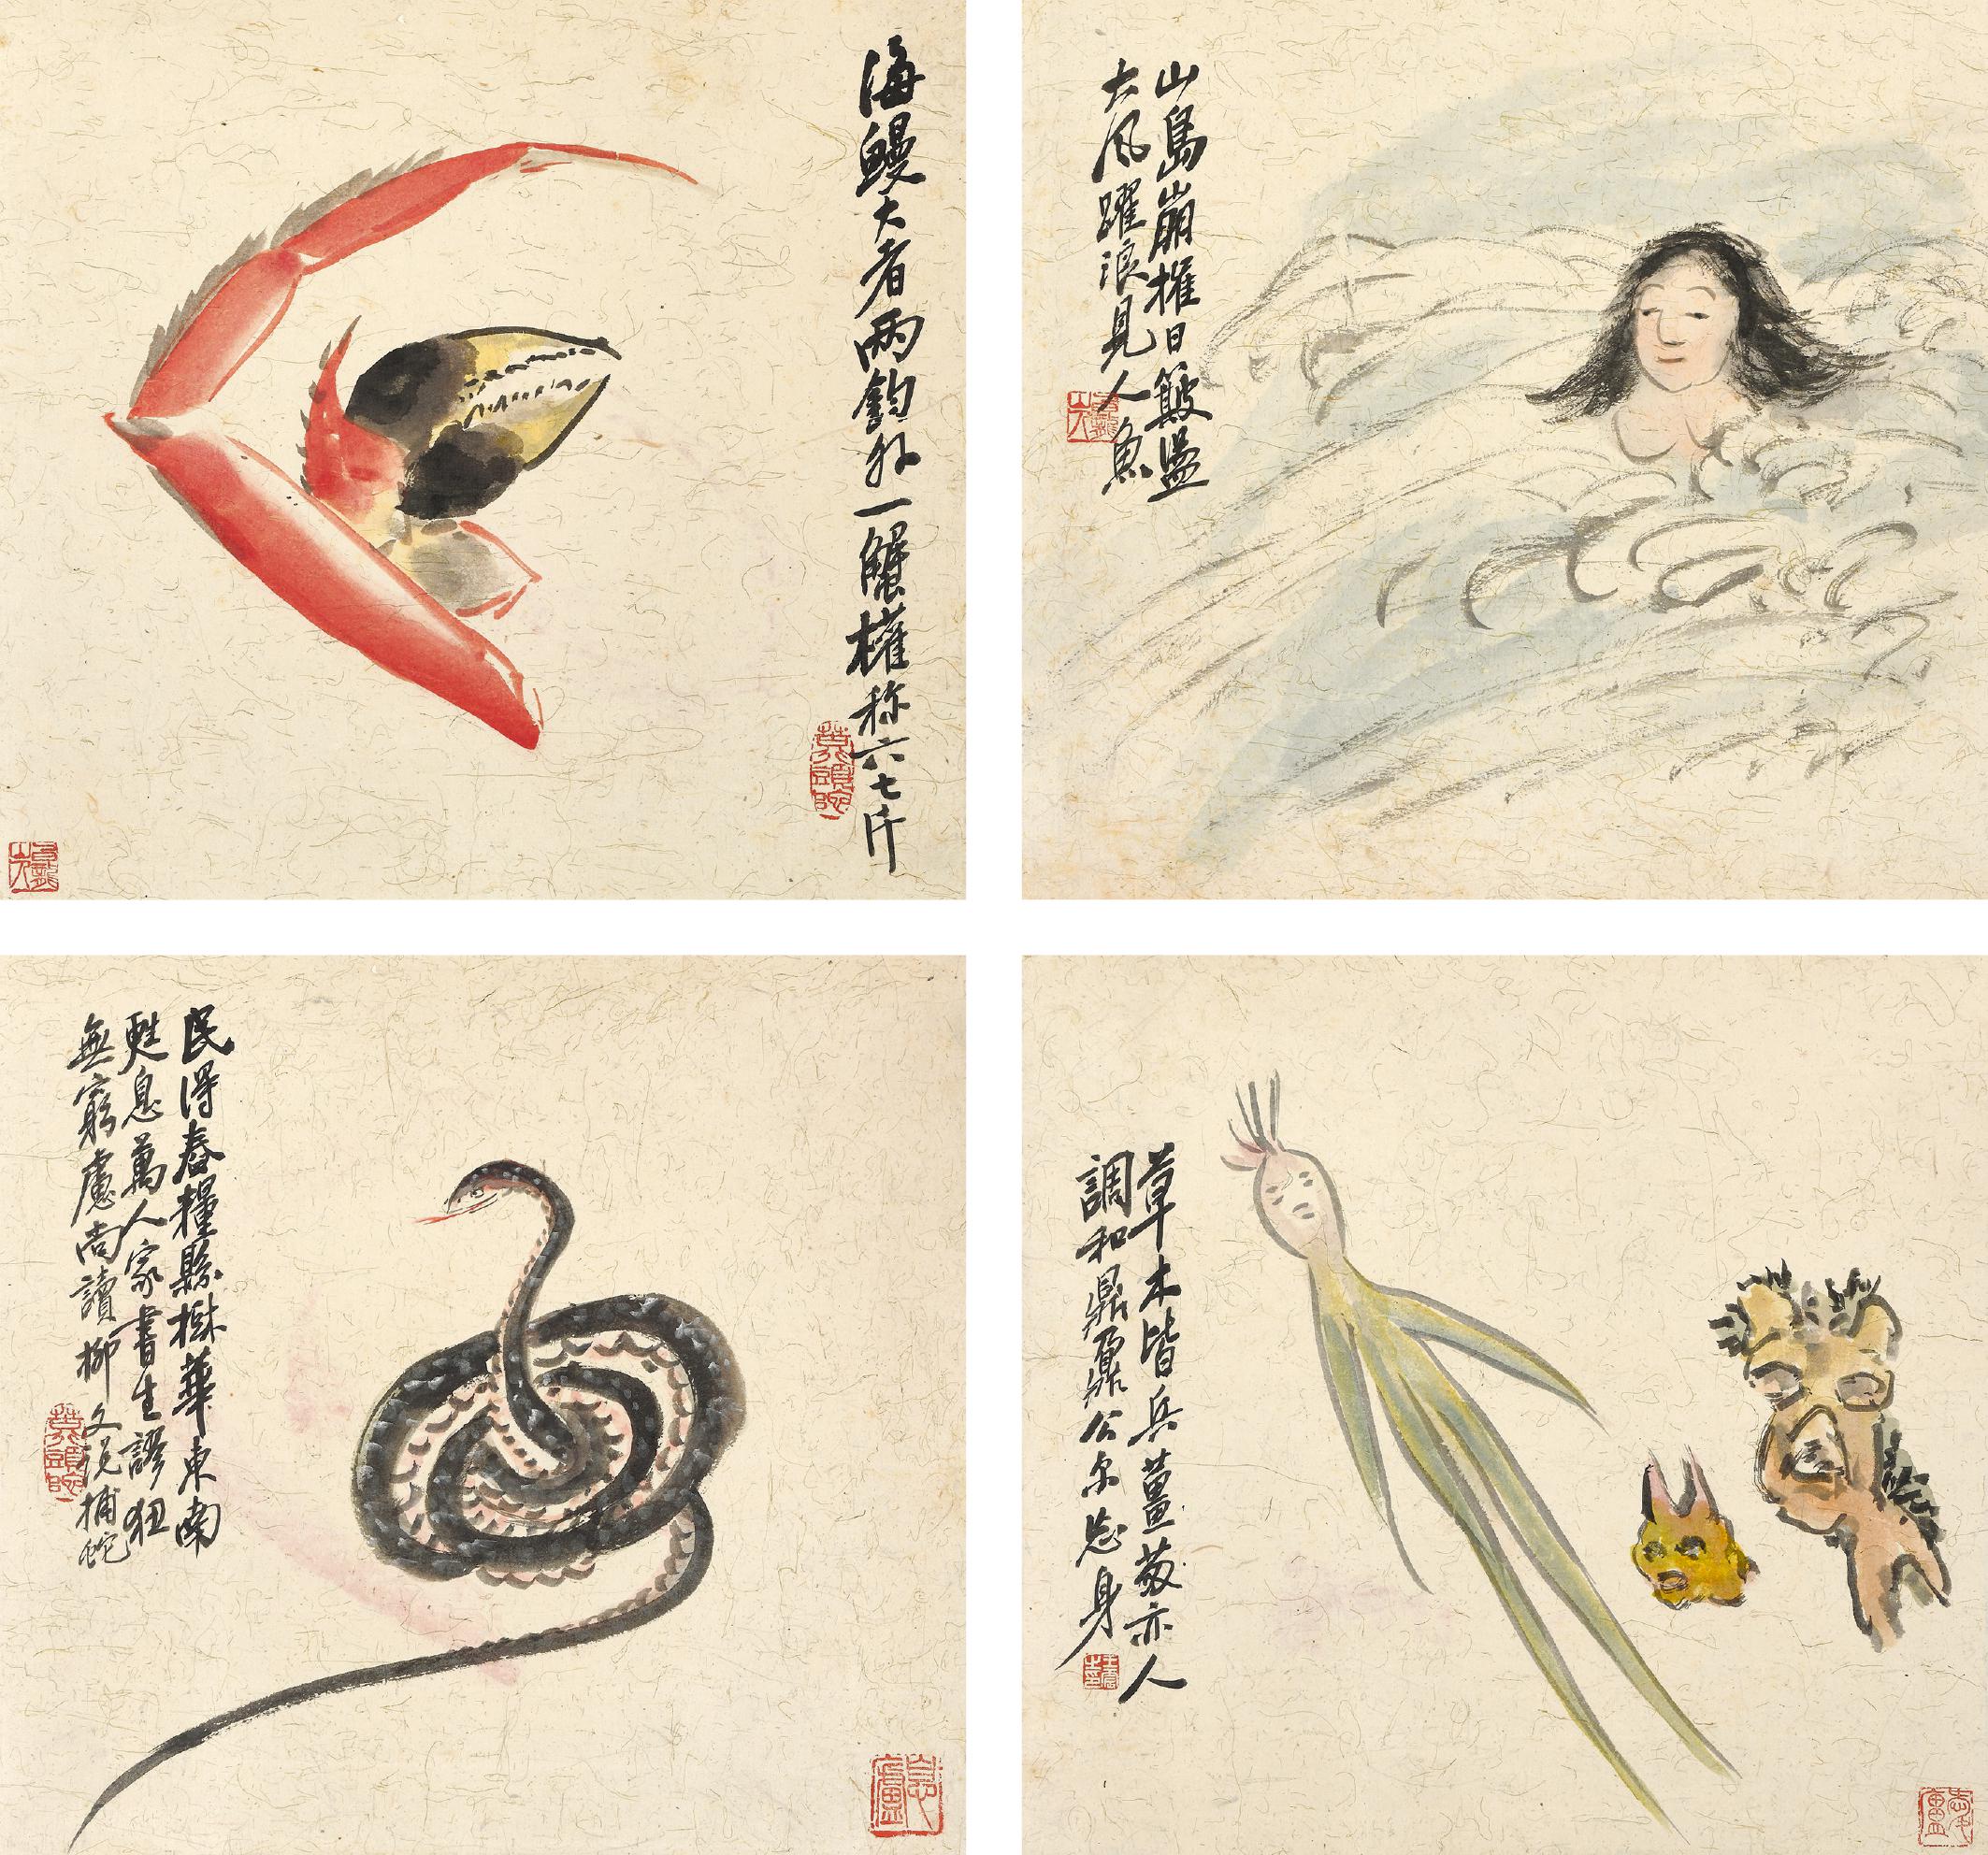 海鰻大者兩鈞外一蟹權称六七斤
山島崩摧日簸盪
大風躍浪見人魚
民得舂糧縣華東南
甦息萬人家書生謬
無窮慮尚讀柳文説捕蛇
草木皆兵薑蔥亦人
調和鼎鼐公尔忘身